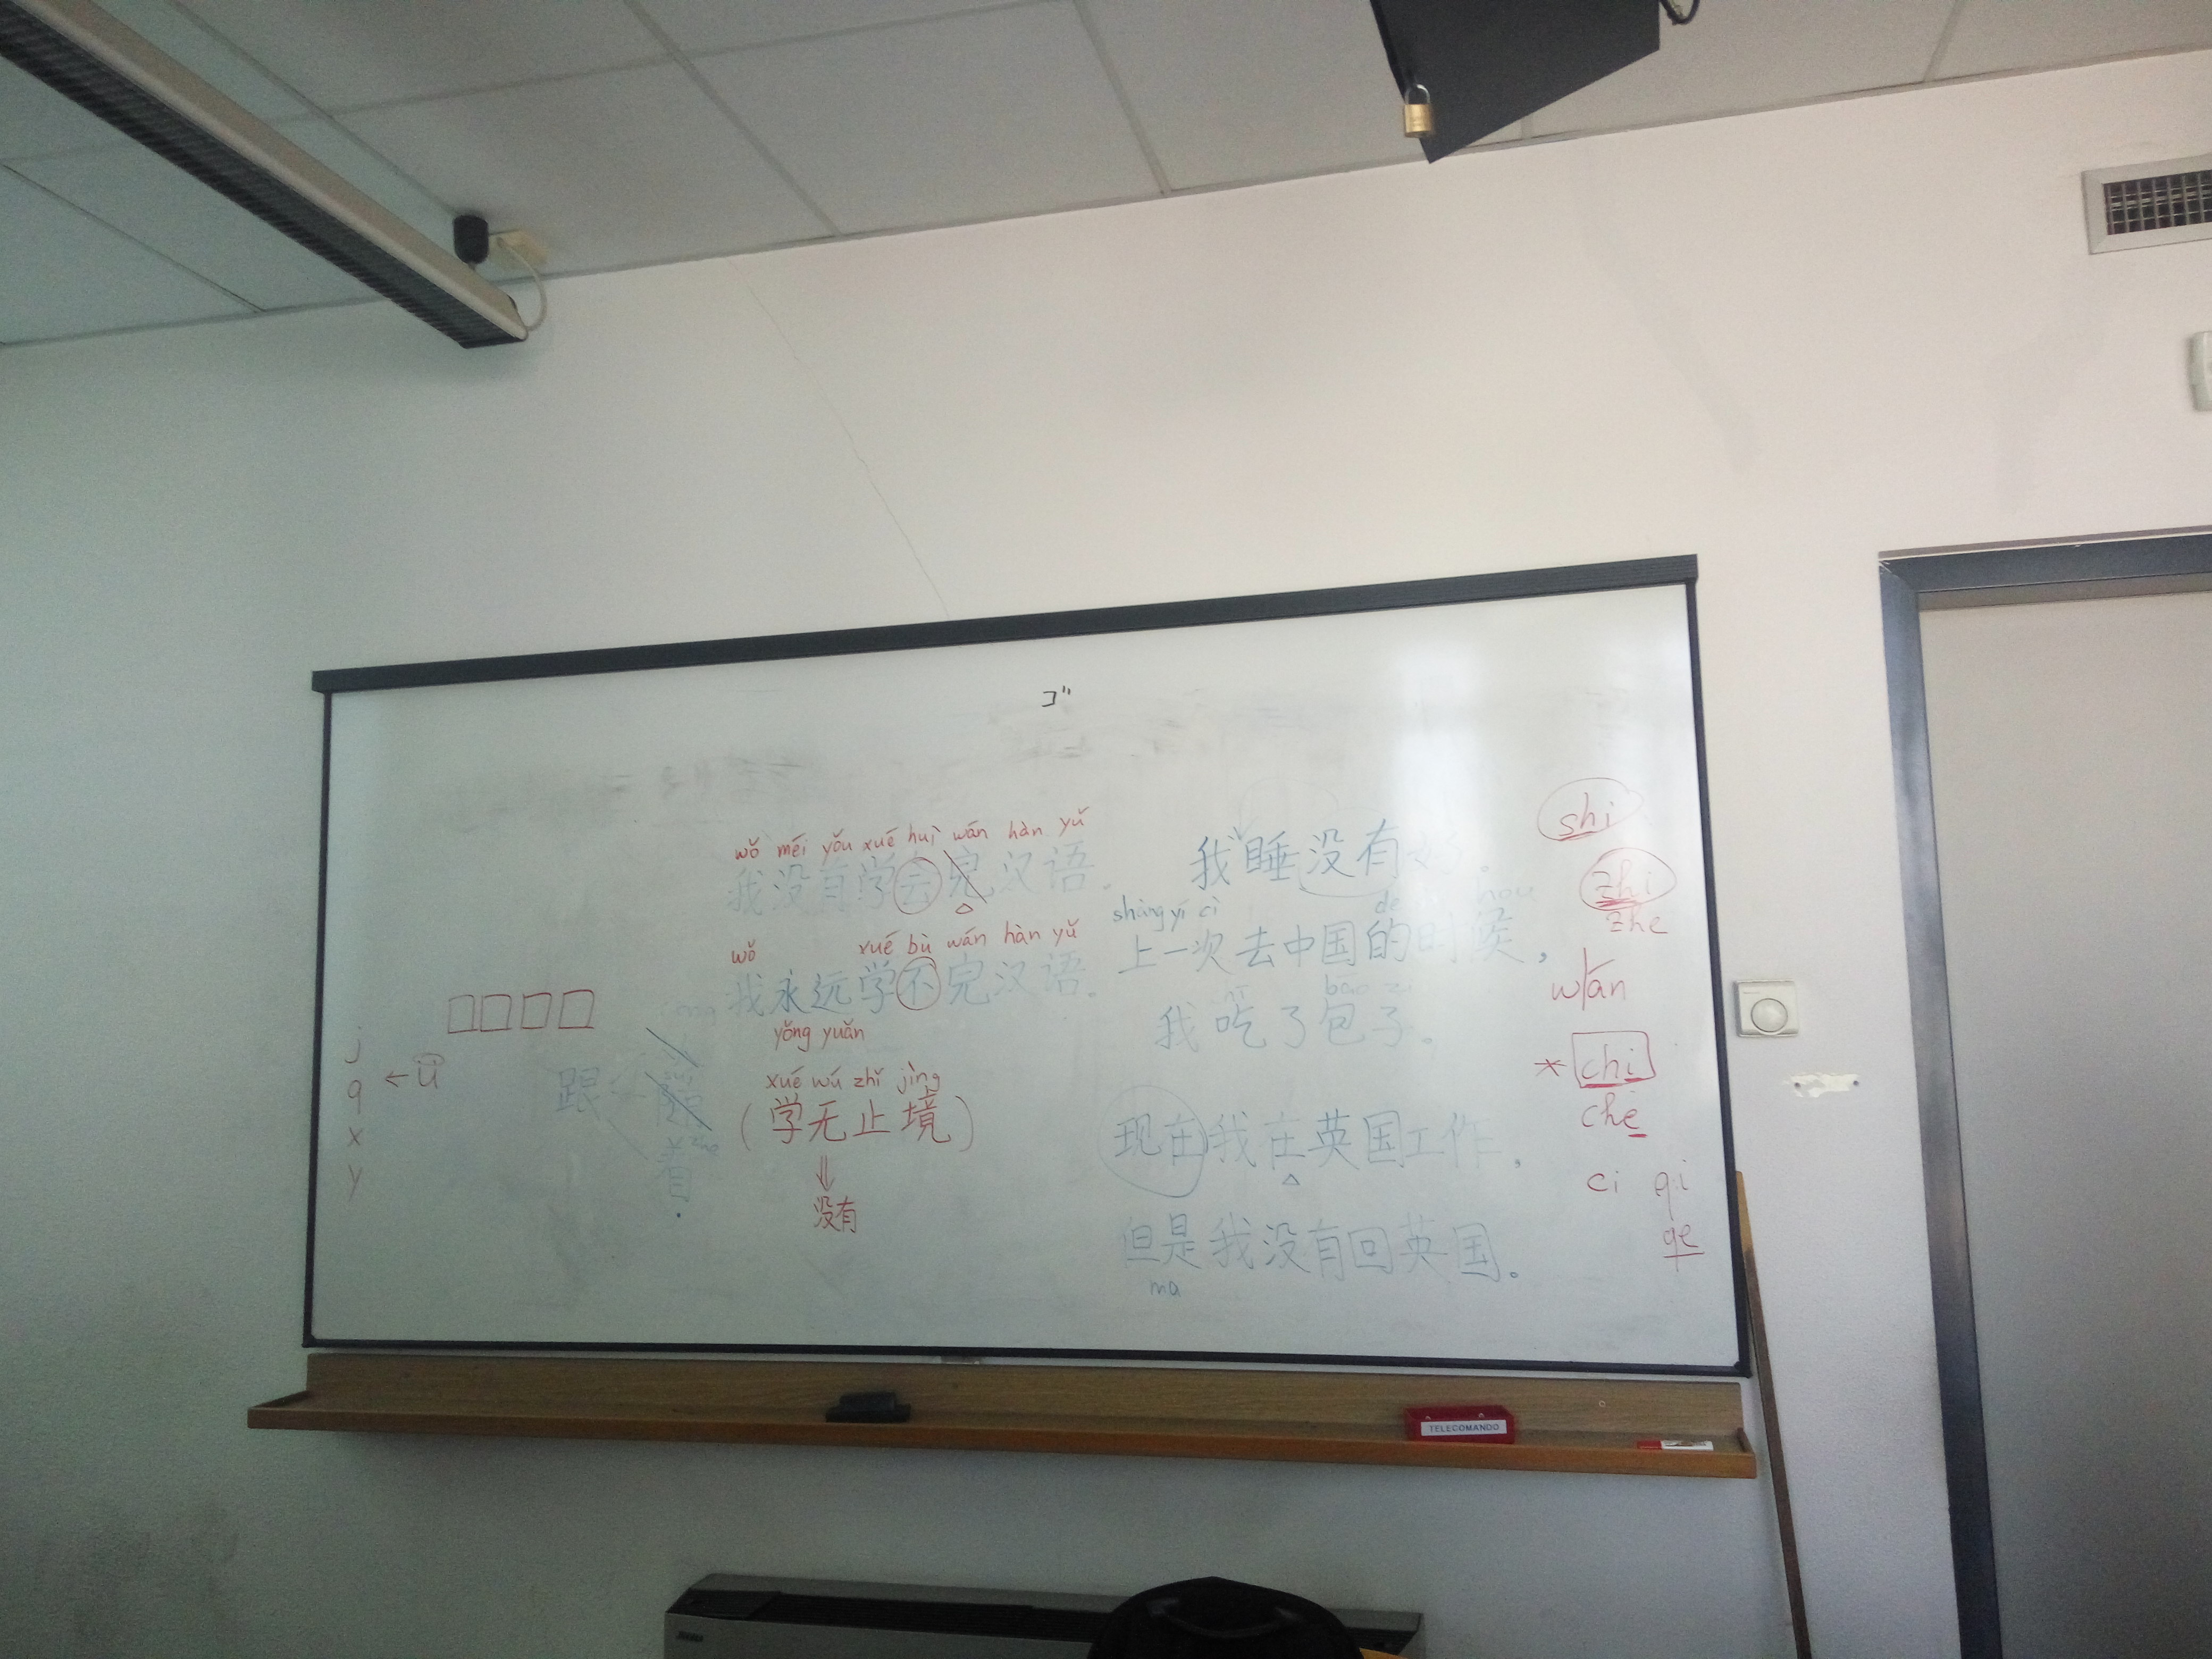 ゴ
wǒ méi yǒu xué huì wán hàn yǔ
我没有学会完汉语.
wǒ xué bù wán hàn yǔ
我永远学不完汉语.
yǒng yuǎn
xué wú zhǐ jìng
(学无止境)
⇓
没有
j
q ← ü
x
y
跟
着
我睡没有好.
shàng yí cì de hou
上一次去中国的时候,
bāo zi
我吃了包子。
现在我在英国工作,
但是我没有回英国。
ma
shi
zhi
zhe
wan
* chi
che
ci qi
qe
TELECOMANDO